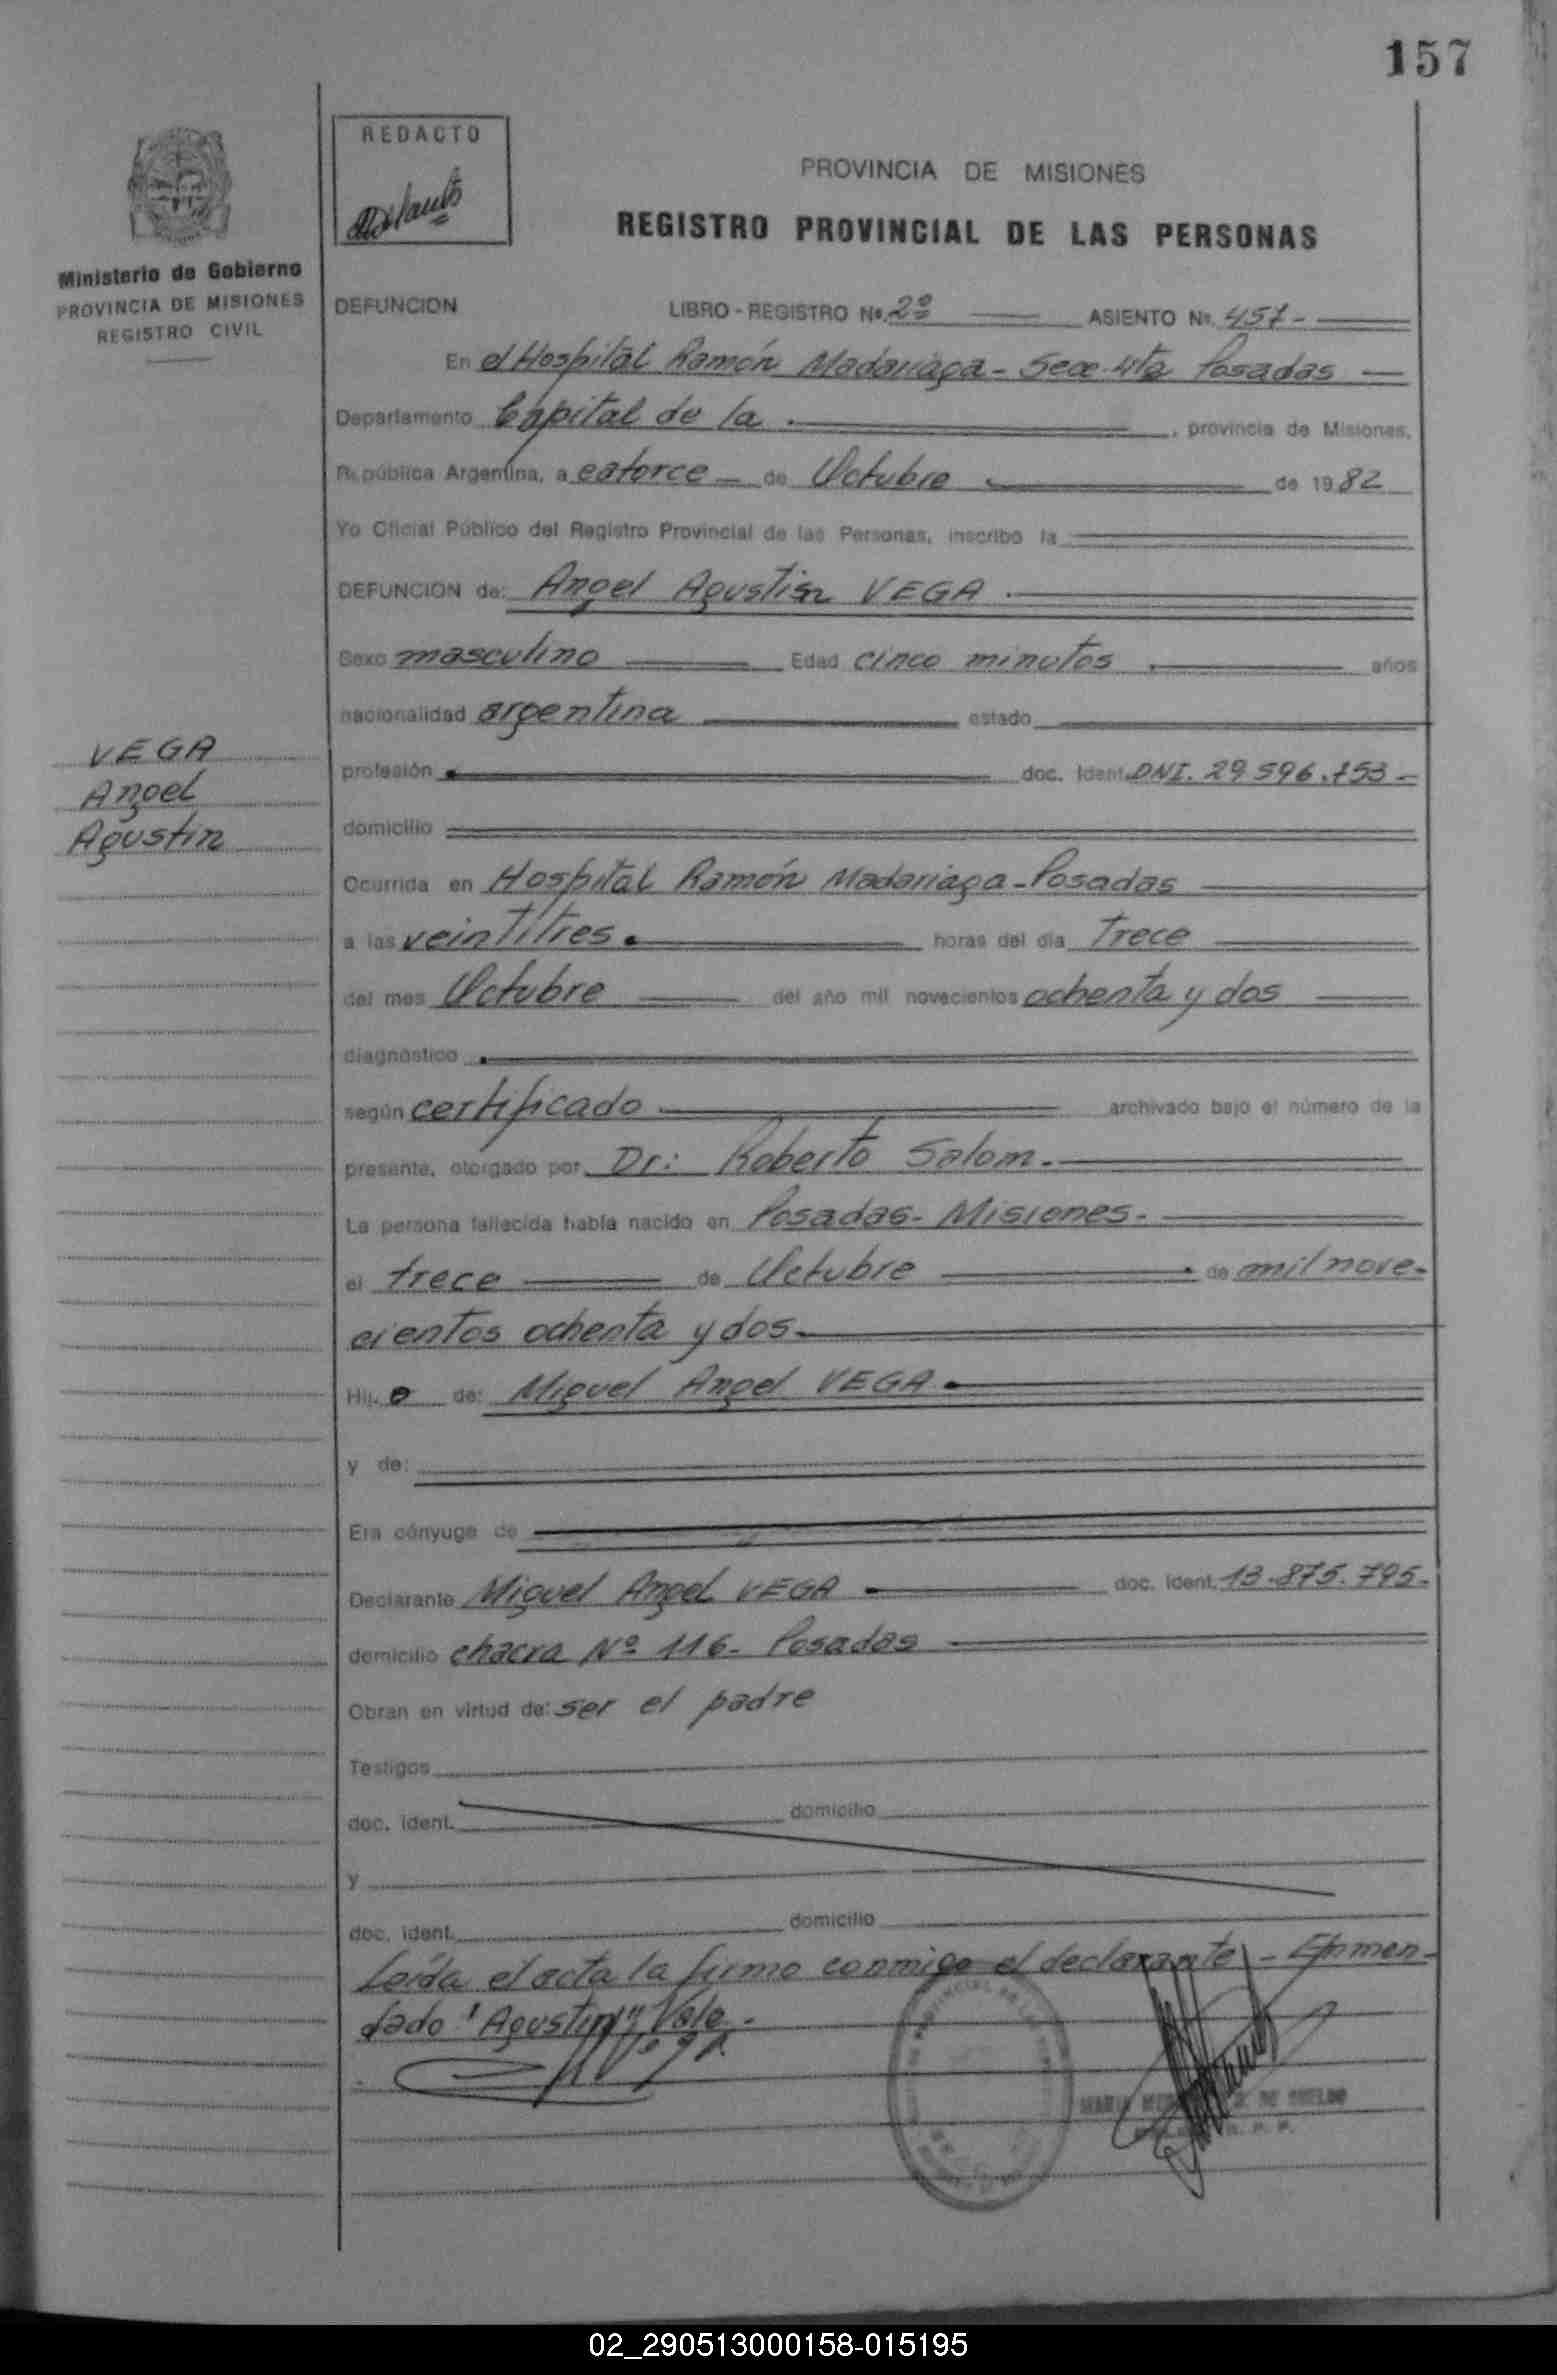 157
REDACTO
PROVINCIA DE MISIONES
REGISTRO PROVINCIAL DE LAS PERSONAS
Ministerio de Gobierno
PROVINCIA DE MISIONES
REGISTRO CIVIL
DEFUNCION LIBRO - REGISTRO No. 2º ASIENTO No. 457 -
En el Hospital Ramón Madariaga - Secc. 4ta Posadas
Departamento Capital de la , provincia de Misiones,
República Argentina, a catorce de Octubre de 1982
Yo Oficial Público del Registro Provincial de las Personas, inscribo la
DEFUNCION de: Angel Agustin VEGA
Sexo masculino Edad cinco minutos años
nacionalidad argentina estado
VEGA
Angel
Agustin
profesión doc. Ident. DNI. 29.596.753 -
domicilio
Ocurrida en Hospital Ramón Madariaga - Posadas
a las veintitres horas del día trece
del mes Octubre del año mil novecientos ochenta y dos
diagnóstico
según certificado archivado bajo el número de la
presente, otorgado por Dr: Roberto Salom.
La persona fallecida había nacido en Posadas - Misiones -
el trece de Octubre de mil nove-
cientos ochenta y dos.
Hij o de: Miguel Angel VEGA
y de:
Era cónyuge de
Declarante Miguel Angel VEGA doc. ident. 13.875.795 -
domicilio chacra Nº 116 - Posadas
Obran en virtud de: ser el padre
Testigos
doc. ident. domicilio
y
doc. ident. domicilio
Leída el acta la firma conmigo el declarante - Enmen-
dado "Agustin" Vale.
02_290513000158-015195